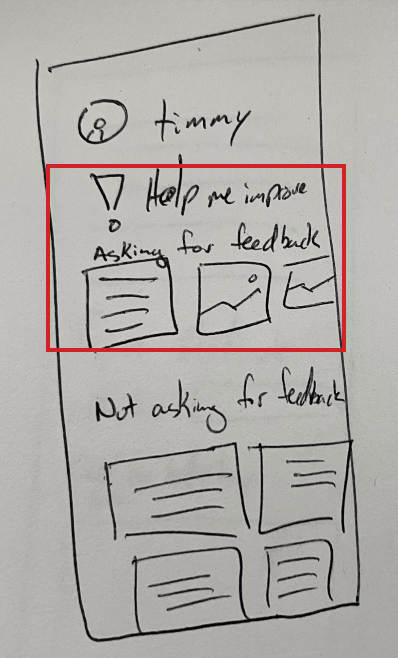 timmy
Help me improve
Asking for feedback
Not asking for feedback